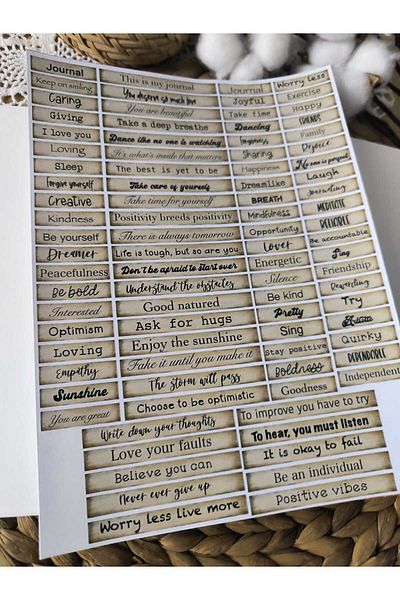 Journal
This is my journal
Journal
Worry less
Keep on smiling
You deserve so much love
Joyful
Exercise
Caring
You are beautiful
Take time
Happy
Giving
Take a deep breathe
Dancing
FRIENDS
I love you
Dance like no one is watching
Family
Loving
It's what's inside that matters
Sharing
Rejoice
Sleep
The best is yet to be
Happiness
No one is perfect
forgive yourself
Take care of yourself
Dreamlike
Laugh
Creative
Take time for yourself
BREATH
Journaling
Kindness
Positivity breeds positivity
Mindfulness
MEDITATE
Be yourself
There is always tomorrow
Opportunity
RELIABLE
Dreamer
Life is tough, but so are you
Lover
Be accountable
Peacefulness
Don't be afraid to start over
Energetic
Be bold
Understand the obstacles
Silence
Friendship
Interested
Good natured
Be kind
Rewarding
Optimism
Ask for hugs
Pretty
Try
Loving
Enjoy the sunshine
Sing
Artistic
Empathy
Fake it until you make it
Stay positive
Quirky
Sunshine
The storm will pass
Boldness
DEPENDABLE
You are great
Choose to be optimistic
Goodness
Independent
Write down your thoughts
To improve you have to try
Love your faults
To hear, you must listen
Believe you can
It is okay to fail
Never ever give up
Be an individual
Worry less live more
Positive vibes